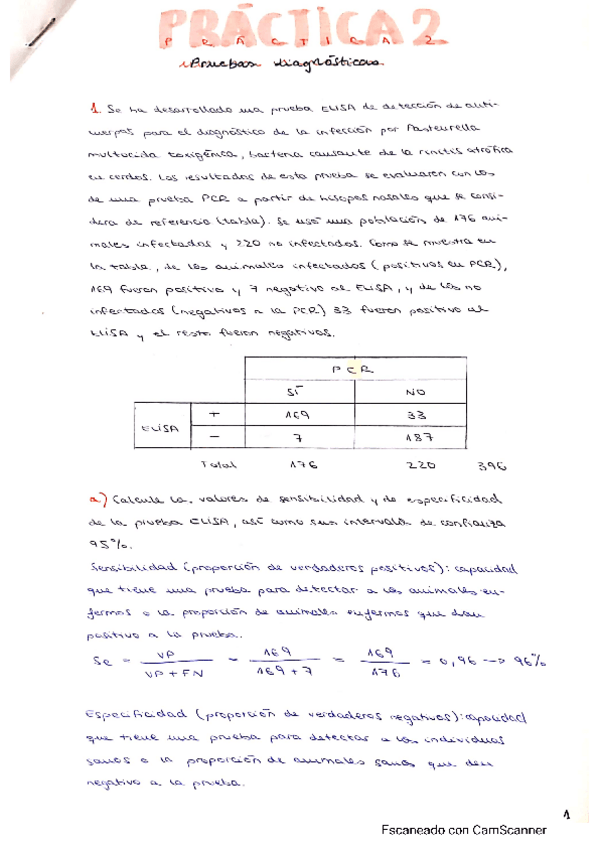 PRÁCTICA 2
PRÁCTICA 2
Pruebas diagnósticas
1. Se ha desarrollado una prueba ELISA de detección de anti-
cuerpos para el diagnóstico de la infección por Pasteurella
multocida toxigénica, bacteria causante de la rinitis atrófica
en cerdos. Los resultados de esta prueba se evaluaron con los
de una prueba PCR a partir de hisopos nasales que se consi-
dera de referencia (tabla). Se usó una población de 176 ani-
males infectados y 220 no infectados. Como se muestra en
la tabla, de los animales infectados (positivos en PCR),
169 fueron positivo y 7 negativo al ELISA, y de los no
infectados (negativos a la PCR) 33 fueron positivo al
ELISA y el resto fueron negativos.
PCR
SÍ NO
ELISA + 169 33
- 7 187
Total 176 220 396
a) Calcule los valores de sensibilidad y de especificidad
de la prueba ELISA, así como sus intervalos de confianza
95%.
Sensibilidad (proporción de verdaderos positivos): capacidad
que tiene una prueba para detectar a los animales en-
fermos o la proporción de animales enfermos que dan
positivo a la prueba.
Se = VP / VP + FN = 169 / 169 + 7 = 169 / 176 = 0,96 --> 96%
Especificidad (proporción de verdaderos negativos): capacidad
que tiene una prueba para detectar a los individuos
sanos o la proporción de animales sanos que den
negativo a la prueba.
1
Escaneado con CamScanner